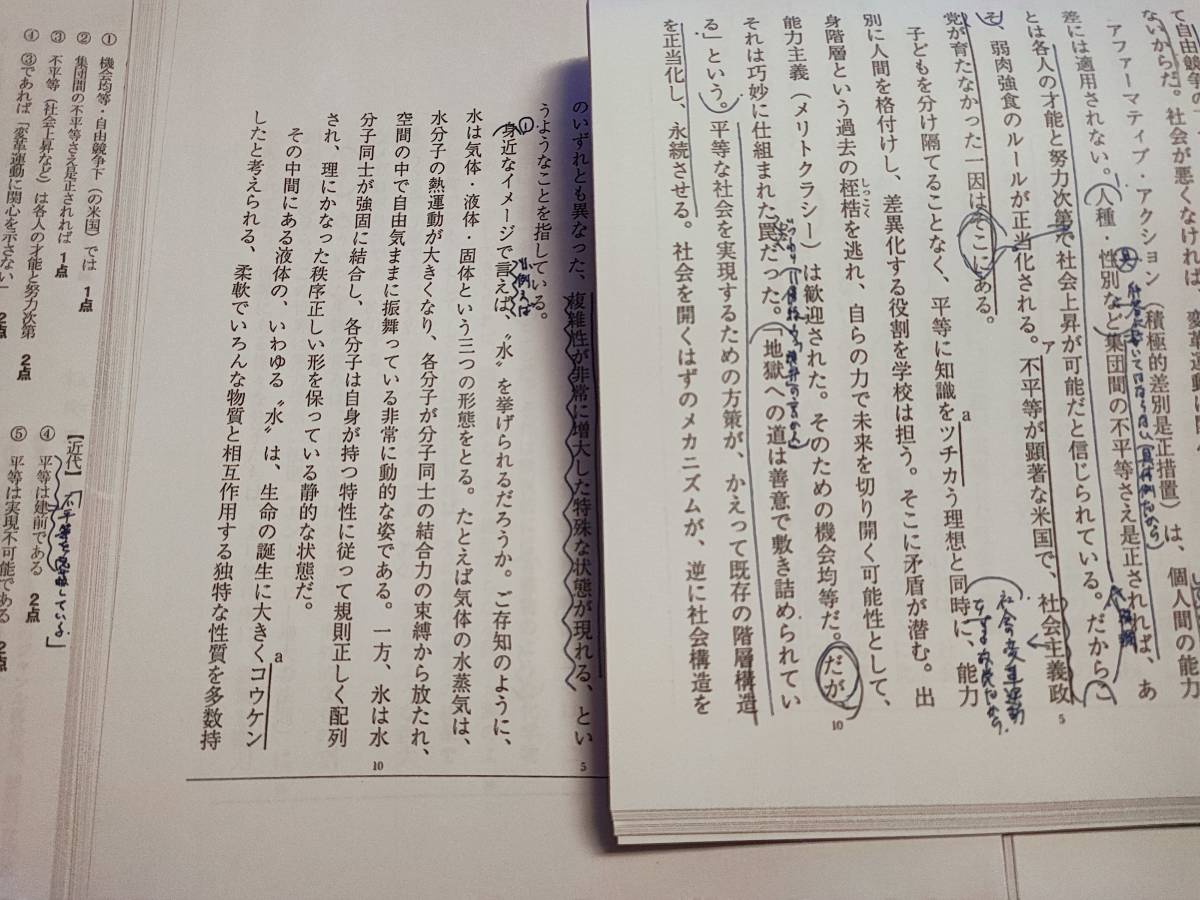 て自由競争の
ないからだ。社会が悪くなければ、変革運動に関
アファーマティブ・アクション（積極的差別是正措置）は、個人間の能力
差には適用されない。人種・性別など集団間の不平等さえ是正されれば、あ
とは各人の才能と努力次第で社会上昇が可能だと信じられている。だから
そ、弱肉強食のルールが正当化される。不平等が顕著な米国で、社会主義政
ア
党が育たなかった一因はそこにある。
5
子どもを分け隔てることなく、平等に知識をツチカう理想と同時に、能力
a
別に人間を格付けし、差異化する役割を学校は担う。そこに矛盾が潜む。出
身階層という過去の桎梏を逃れ、自らの力で未来を切り開く可能性として、
しっこく
能力主義（メリトクラシー）は歓迎された。そのための機会均等だ。だが、
10
それは巧妙に仕組まれた罠だった。「地獄への道は善意で敷き詰められてい
る」という。平等な社会を実現するための方策が、かえって既存の階層構造
を正当化し、永続させる。社会を開くはずのメカニズムが、逆に社会構造を
社会の変革運動
のいずれとも異なった、複雑性が非常に増大した特殊な状態が現れる、とい
5
うようなことを指している。
①
身近なイメージで言えば、〝水〟を挙げられるだろうか。ご存知のように、
例えば
水は気体・液体・固体という三つの形態をとる。たとえば気体の水蒸気は、
水分子の熱運動が大きくなり、各分子が分子同士の結合力の束縛から放たれ、
空間の中で自由気ままに振舞っている非常に動的な姿である。一方、氷は水
分子同士が強固に結合し、各分子は自身が持つ特性に従って規則正しく配列
10
され、理にかなった秩序正しい形を保っている静的な状態だ。
その中間にある液体の、いわゆる〝水〟は、生命の誕生に大きくコウケン
a
したと考えられる、柔軟でいろんな物質と相互作用する独特な性質を多数持
① 機会均等・自由競争下（の米国）では 1点
② 集団間の不平等さえ是正されれば 1点
③ 不平等（社会上昇など）は各人の才能と努力次第 2点
④ ③であれば「変革運動に関心を示さない」 2点
【近代】
④ 平等は建前である 2点
⑤ 平等は実現不可能である 2点